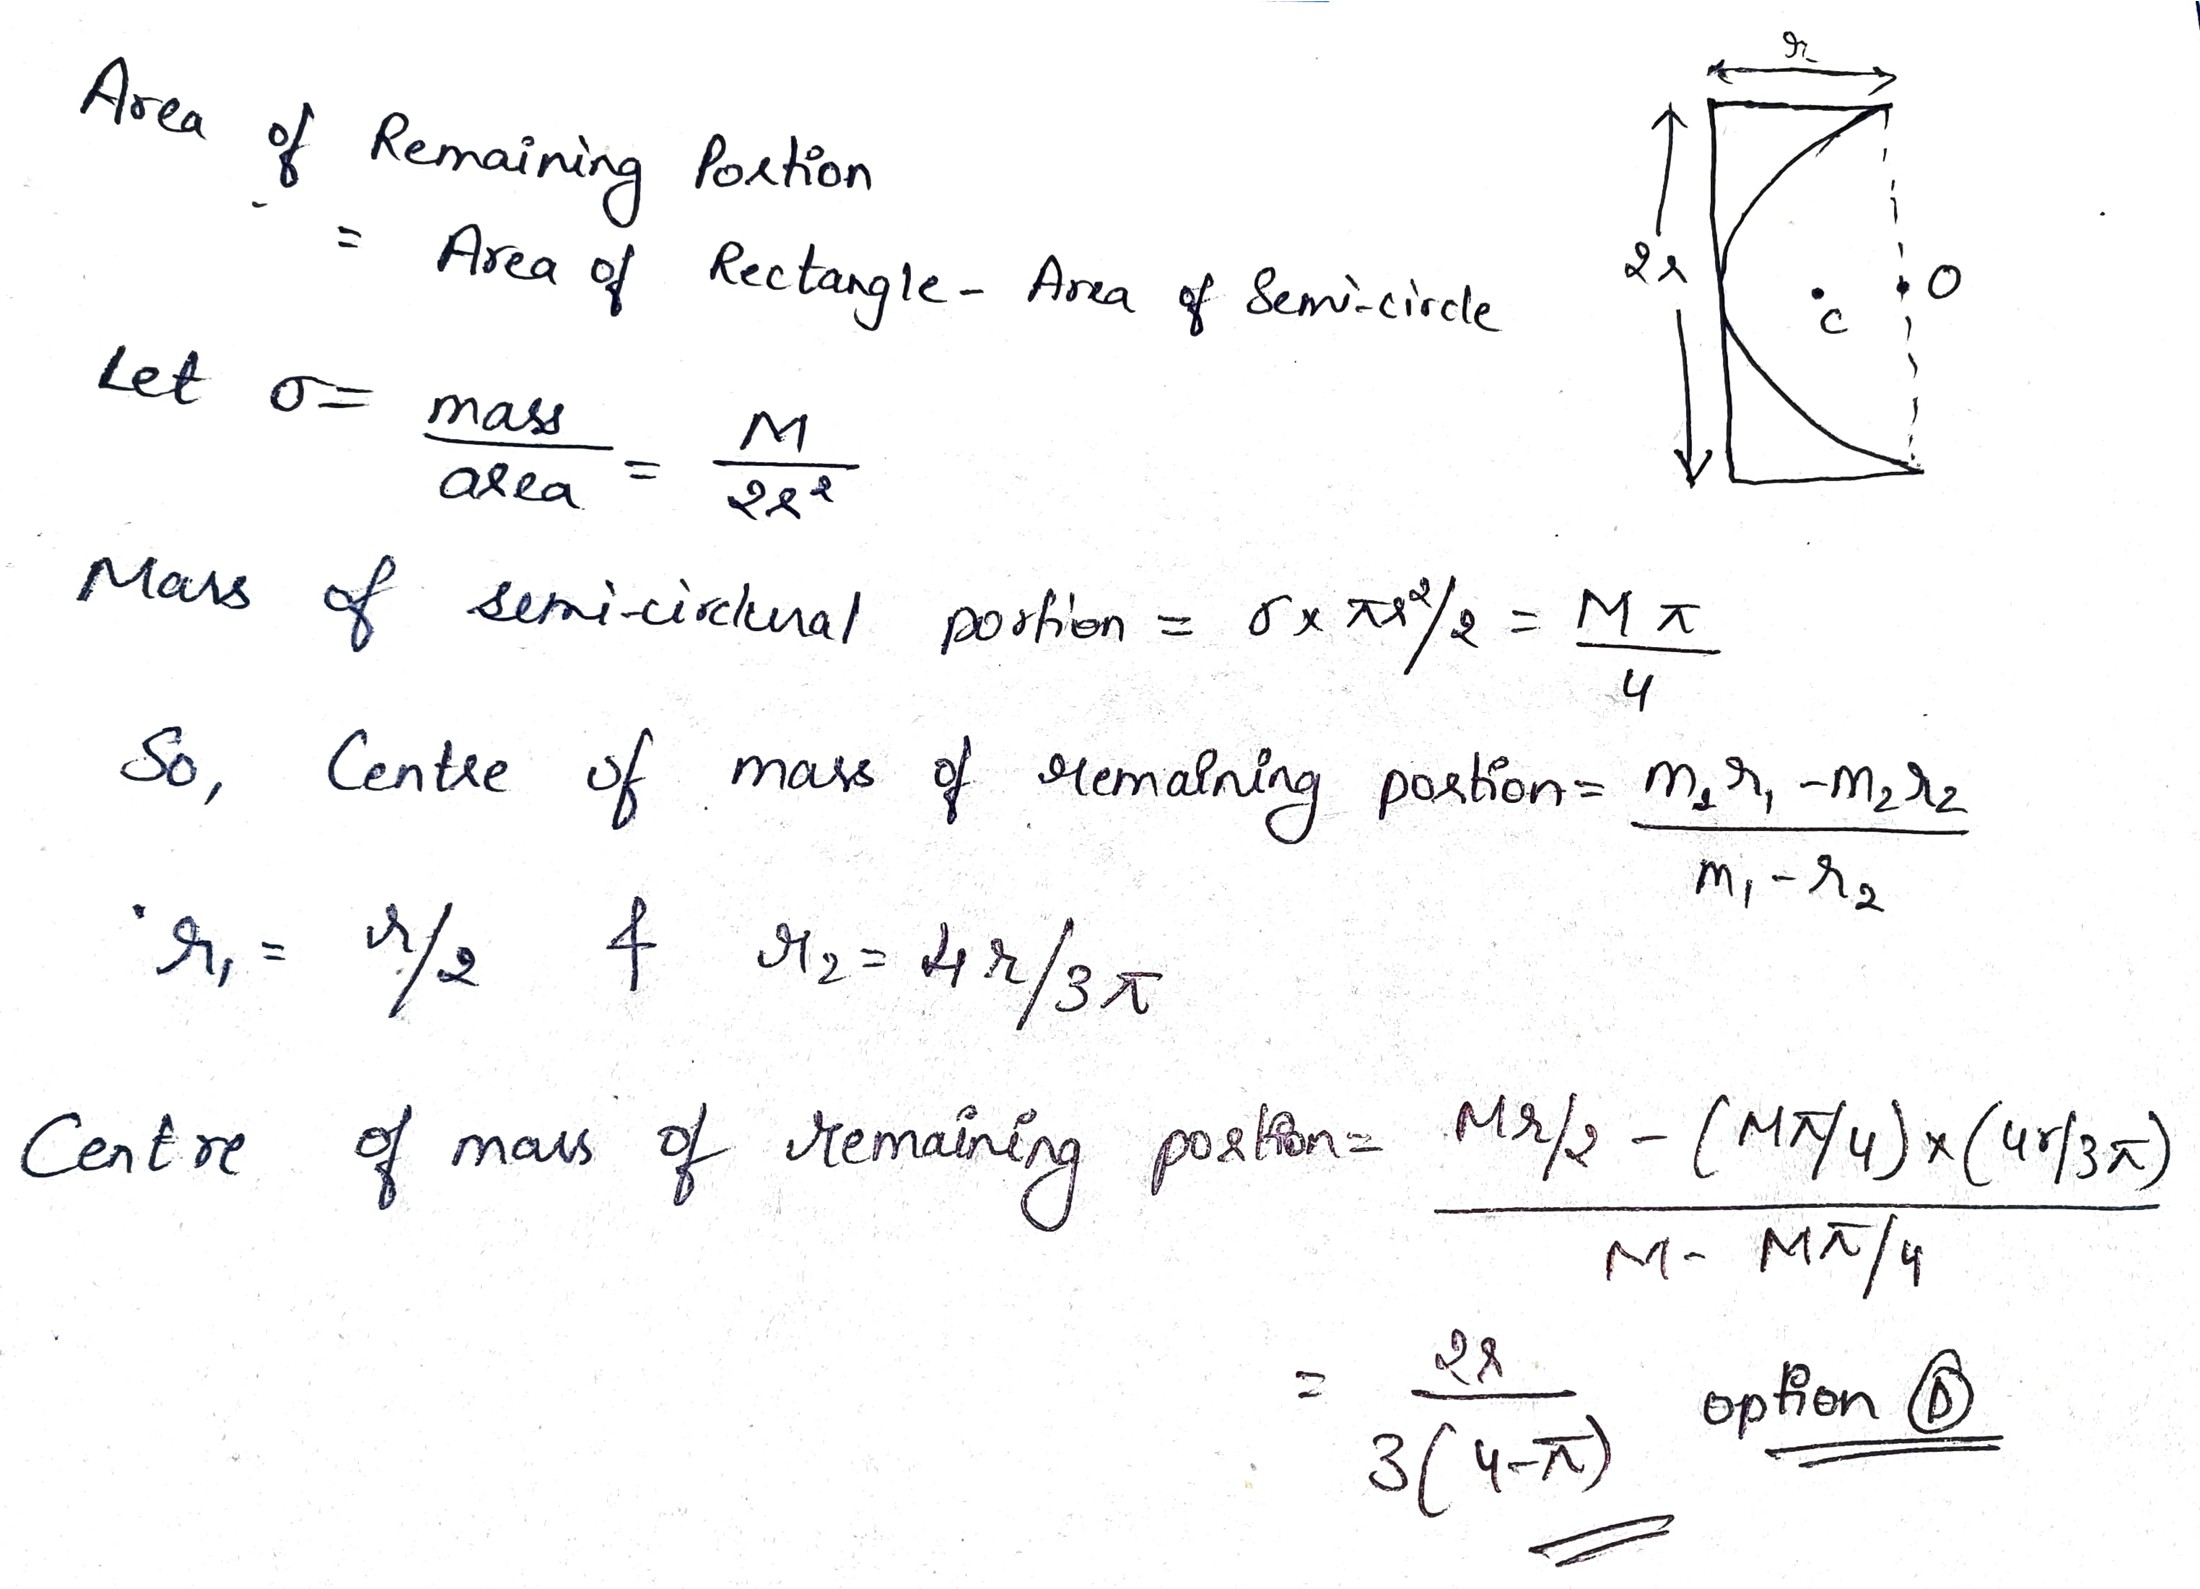 Area of Remaining Portion
= Area of Rectangle - Area of Semi-circle
r
2r
C
O
Let σ = mass/area = M/2r²
Mass of semi-circlural portion = σ x πr²/2 = Mπ/4
So, Centre of mass of remaining portion = m₁r₁ - m₂r₂ / m₁ - r₂
r₁ = r/2 & r₂ = 4r/3π
Centre of mass of remaining portion = Mr/2 - (Mπ/4) x (4r/3π) / M - Mπ/4
= 2r/3(4-π) option Ⓓ